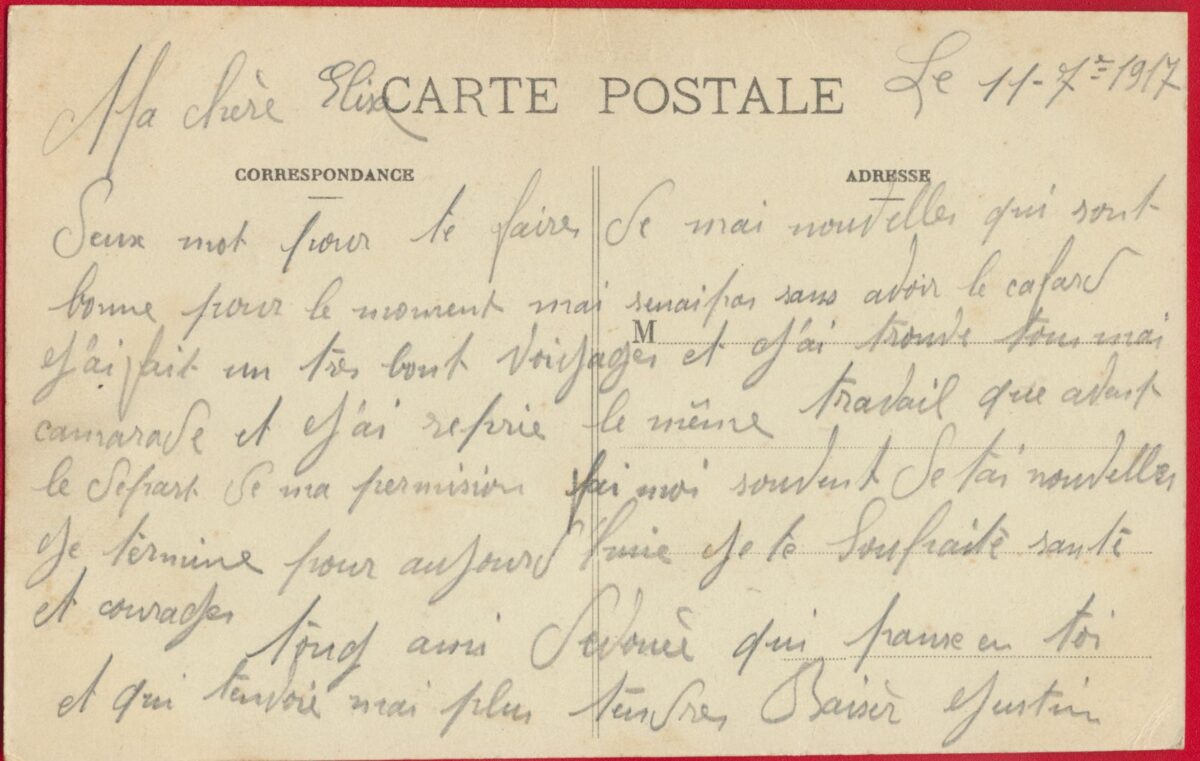 CARTE POSTALE
Le 11-7re 1917
Ma chère Elisa
CORRESPONDANCE
ADRESSE
M
Deux mot pour te faires de mai nouvelles qui sont
bonne pour le moment mai senaipas sans avoir le cafard
J'ai fait un très bont voiyages et J'ai trouve tous mai
camarade et J'ai reprie le même travail que avent
le départ de ma permision fai moi souvent de tai nouvelles
Je tèrmine pour aujourd huie Je te souhaitè santè
et courages
tong ami dévouèe qui panse en toi
et qui tenvoie mai plus tendres Baisèr Justin